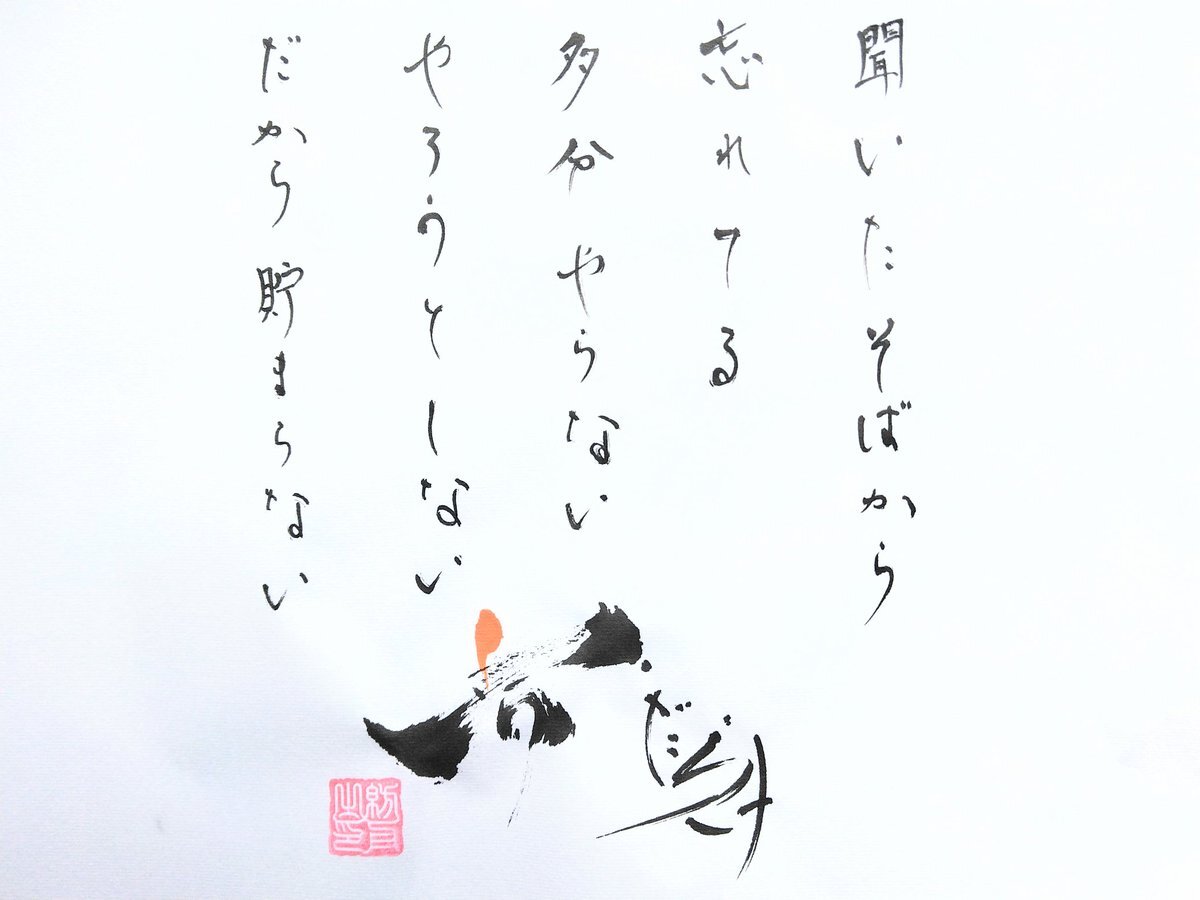 聞いたそばから
忘れてる
多分やらない
やろうとしない
だから貯まらない